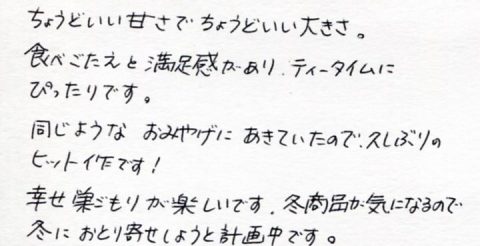 ちょうどいい甘さでちょうどいい大きさ。
食べごたえと満足感があり、ティータイムに
ぴったりです。
同じような おみやげに あきていたので、久しぶりの
ヒット作です！
幸せ巣ごもりが楽しいです。冬商品が気になるので
冬に おとり寄せしようと計画中です。